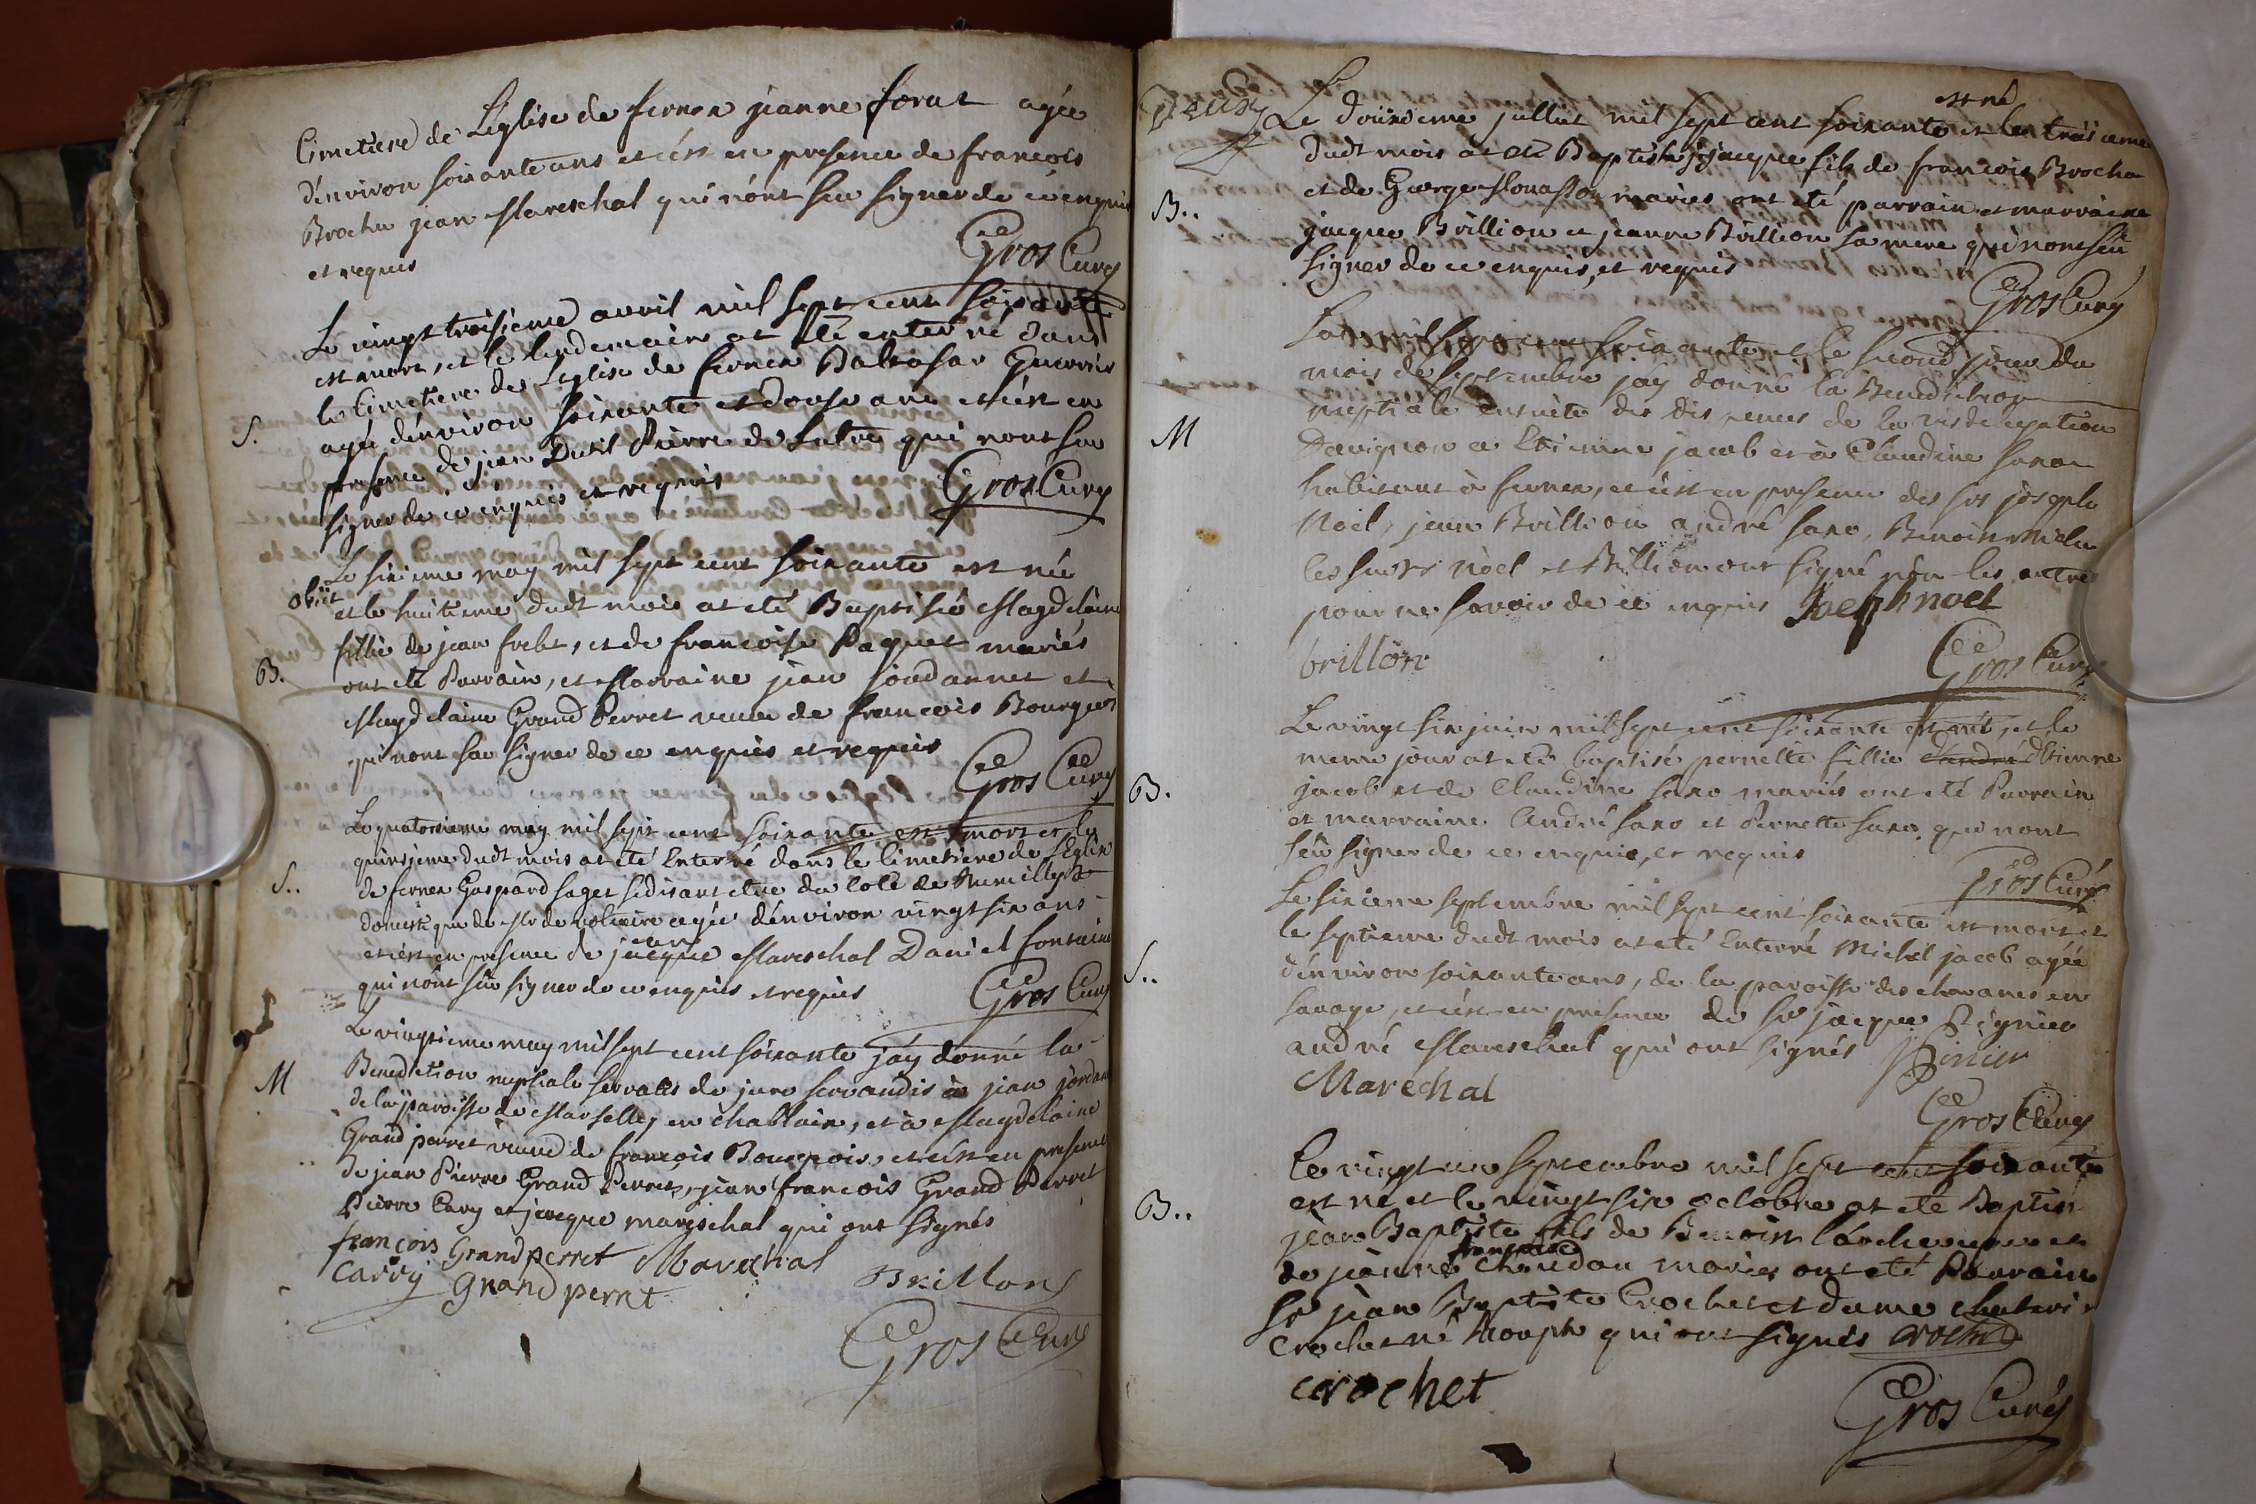 Cimetiere de L'eglise de fernex jeanne forat agée
d'environ soixante ans et c'est en presence de francois
Brochu jean Mareschal qui n'ont seu signer de ce enquis
et requis
Gros Curé
Le vingt troisieme avril mil sept cent soixante
est mort, et le lendemain at été enterré dans
le Cimetiere de L'eglise de fernex Baltasar Guerrier
S.
agée d'environ soixante et douse ans et c'est en
presence de jean Duvil Pierre de qui n'ont seu
signer de ce enquis et requis
Gros Curé
Le sixieme may mil sept cent soixante est née
obiit
et le huitieme dudt mois at eté Baptisée Magdelaine
fillie de jean , et de francoise Paquet mariés
B.
ont eté Parrain, et Marraine jean jourdannet et
Magdelaine Grand Perret veuve de francois Bourgeois
qui n'ont seu signer de ce enquis et requis
Gros Curé
Le quatorsieme may mil sept cent soixante est mort et le
quinsieme dudt mois at eté Enterré dans le Cimetiere de L'Eglise
S..
de fernex Gaspard se disant etre du coté de Rumilly
domestique de Mr de voltaire agée d'environ vingt six ans
et c'est en presence de jacque Mareschal Daniel fontaine
qui n'ont seu signer de ce enquis et requis
Gros Curé
Le vingtieme may mil sept cent soixante j'ay donné la
Benediction nuptiale servatis de jure servandis à jean jordan
M
de la paroisse de Marselley en Chablaix, et à Magdelaine
Grand perret veuve de francois Bourgeois, et c'est en presence
de jean Pierre Grand Perret, jean francois Grand Perret
Pierre Cary et jacque mareschal qui ont signés
francois Grandperret Marechal
Carry Grandperret
Brillon
Gros Curé
est né
Le douzieme julliet mil sept cent soixante et le treisieme
dudt mois at eté Baptisé jacque fils de francois Brochu
B..
et de mariés ont eté parrain et marraine
jacque Brillion et jeanne Brillion sa mere qui n'ont seu
signer de ce enquis, et requis
Gros Curé
L'an mil sept cent soixante et le second jour du
mois de septembre j'ay donné la Benediction
nuptiale ensuite des dispenses de la vicedelegation
M
D'avignon a Etienne jacob et à Claudine saxo
habitant à fernex, et c'est en presence des srs joseph
Noel, jean Brillion andré saxo, Benoit
les sieurs Noel et Brillion ont signé non les autres
pour ne savoir de ce enquis Joseph noel
brillion
Gros Curé
Le vingt six juin mil sept cent soixante est née, et le
meme jour at eté baptisé pernette fillie d'andré d'Etienne
B.
jacob et de Claudine saxo mariés ont eté Parrain
et marraine André saxo et Pernette saxo que n'ont
seu signer de ce enquis, et requis
Gros Curé
Le sixieme septembre mil sept cent soixante est mort et
le septieme dudt mois at eté Enterré Michel jacob agée
S..
d'environ soixante ans, de la paroisse des en
savoye, et c'est en presence de Sr jacque
andré Mareschal qui ont signés
Marechal
Gros Curé
Le vingt un septembre mil sept cent soixante
est né et le vingt six octobre at eté Baptisé
B..
jean Baptiste fils de Benoit et
francoise
de jeanne mariés ont eté Parrain
Sr jean Baptiste Crochet et dame
Crochet né qui ont signés crochet
crochet
Gros Curé